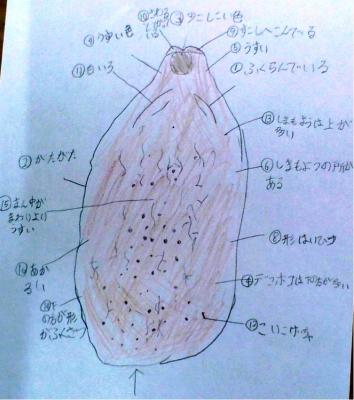 ⑩さわると
③すこしこい色
④うすい色
⑨すこしへこんでいる
⑤うすい
⑪白いろ
①ふくらんでいる
⑬しまもようは上が
多い
②がたがた
⑥しまもようの戸所が
ある
⑮まん中が
まわりより
うすい
⑧形はいびつ
⑭あか
るい
デコボコは下の方が多い
の方が形
がふくざつ
⑫こいこげ茶